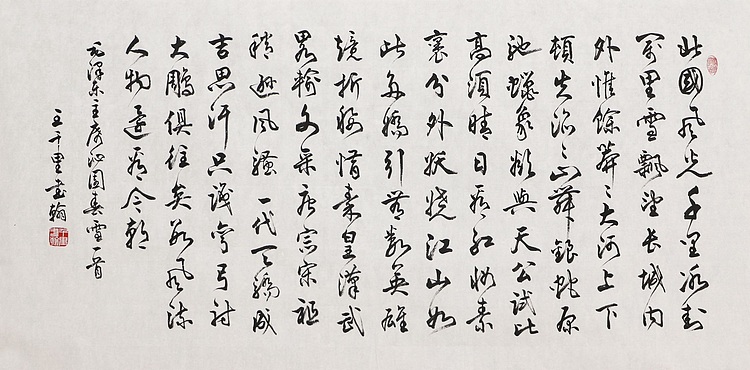 北國風光千里冰封
萬里雪飄望長城内
外惟餘莽々大河上下
頓失滔々山舞銀蛇原
馳蠟象欲與天公試比
高須晴日看紅妝素
裹分外妖嬈江山如
此多嬌引無數英雄
競折腰惜秦皇漢武
畧輸文采唐宗宋祖
稍遜風騷一代天驕成
吉思汗只識彎弓射
大鵰俱往矣數風流
人物還看今朝
毛澤東主席沁園春雪一首
王千里書翰